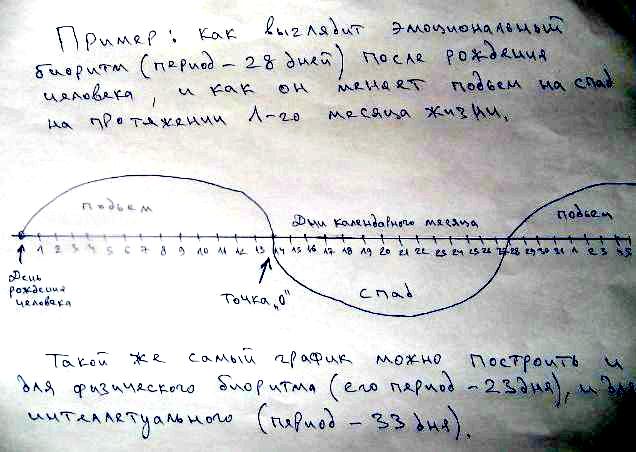 Пример: как выглядит эмоциональный
биоритм (период - 28 дней) после рождения
человека, и как он меняет подьем на спад
на протяжении 1-го месяца жизни.
подьем
Дни календарного месяца
подьем
1 2 3 4 5 6 7 8 9 10 11 12 13 14 15 16 17 18 19 20 21 22 23 24 25 26 27 28 29 30 31 1 2 3 4 5
День
рождения
человека
Точка „0"
спад
Такой же самый график можно построить и
для физического биоритма (его период - 23 дня), и для
интеллетуального (период - 33 дня).